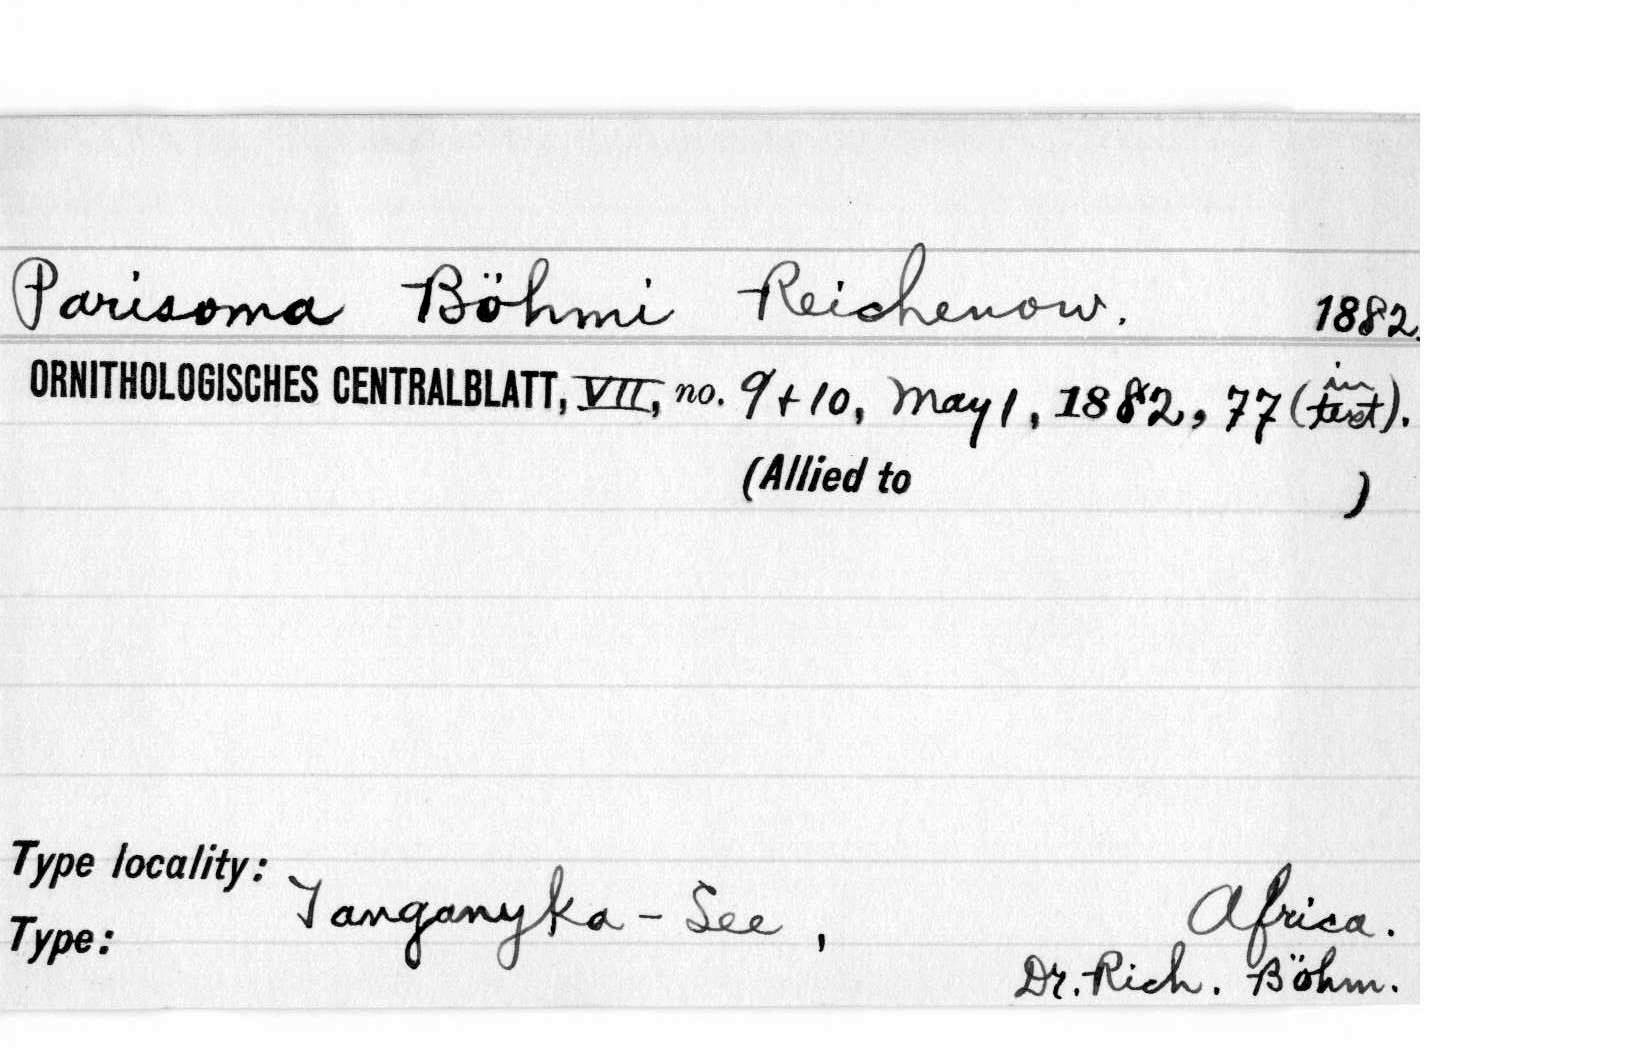 Parisoma Böhmi Reichenow. 1882.
ORNITHOLOGISCHES CENTRALBLATT, VII, no. 9+10, May 1, 1882, 77 (in text).
(Allied to )
Type locality: Tanganyka-See, Africa.
Type: Dr. Rich. Böhm.